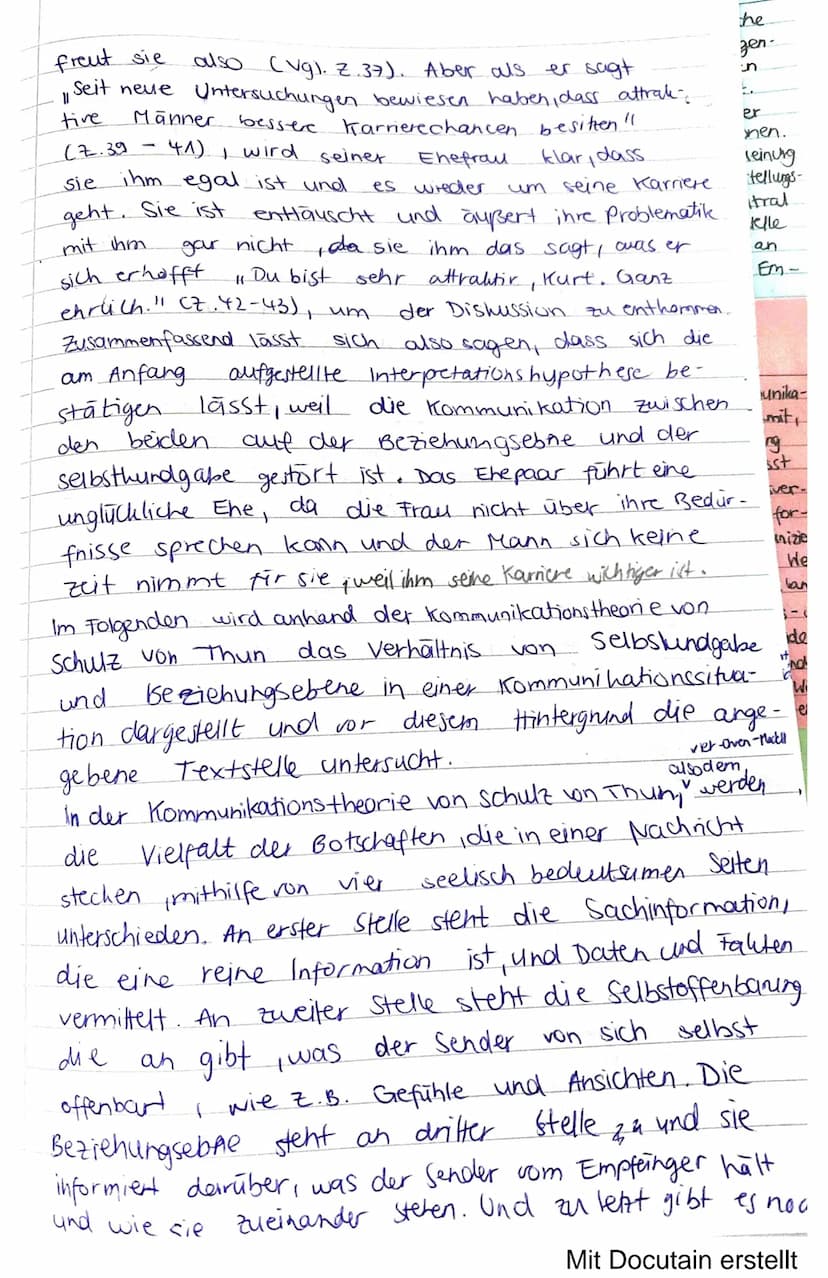 freut sie also (Vgl. Z.37). Aber als er sagt
"Seit neue Untersuchungen bewiesen haben, dass attrak-
tive Männer bessere Karrierechancen besitzen"
(Z.39 - 41), wird seiner Ehefrau klar, dass
sie ihm egal ist und es wieder um seine Karriere
geht. Sie ist enttäuscht und äußert ihre Problematik
mit ihm gar nicht, da sie ihm das sagt, was er
sich erhofft "Du bist sehr attraktiv, Kurt. Ganz
ehrlich." (Z.42-43), um der Diskussion zu entkommen.
Zusammenfassend lässt sich also sagen, dass sich die
am Anfang aufgestellte Interpretationshypothese be-
stätigen lässt, weil die Kommunikation zwischen
den beiden auf der Beziehungsebne und der
selbstkundgabe gestört ist. Das Ehepaar führt eine
unglückliche Ehe, da die Frau nicht über ihre Bedür-
fnisse sprechen kann und der Mann sich keine
Zeit nimmt für sie, weil ihm seine Karriere wichtiger ist.
Im Folgenden wird anhand der Kommunikationstheorie von
Schulz von Thun das Verhältnis von Selbstkundgabe
und Beziehungsebene in einer Kommunikationssitua-
tion dargestellt und vor diesem Hintergrund die ange-
gebene Textstelle untersucht.
also dem
In der Kommunikationstheorie von Schulz von Thun, werden
die Vielfalt der Botschaften, die in einer Nachricht
stecken, mithilfe von vier seelisch bedeutsamen Seiten
unterschieden. An erster Stelle steht die Sachinformation,
die eine reine Information ist, und Daten und Fakten
vermittelt. An zweiter Stelle steht die Selbstoffenbarung
die an gibt, was der Sender von sich selbst
offenbart, wie z.B. Gefühle und Ansichten. Die
Beziehungsebne steht an dritter Stelle und sie
informiert darüber, was der Sender vom Empfänger hält
und wie sie zueinander stehen. Und zu letzt gibt es noc
che
er
leinung
tellungs-
an
Em-
unika-
mit,
for-
Mit Docutain erstellt